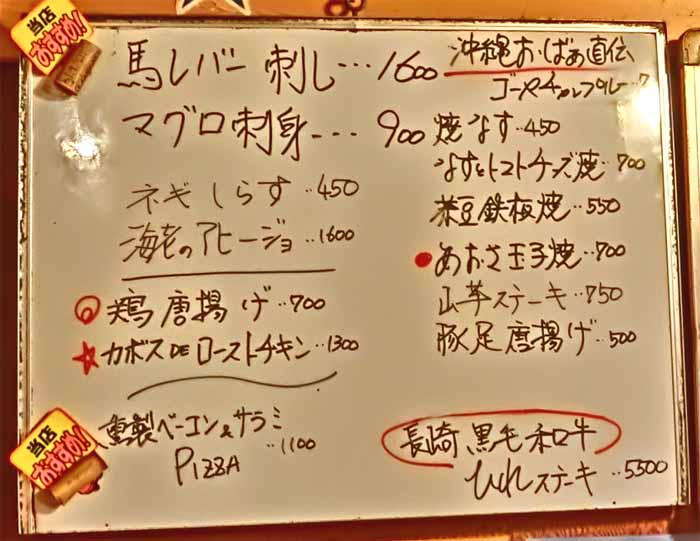 当店
おすすめ!
馬レバー刺し…1600
マグロ刺身---900
ネギしらす…450
海老のアヒージョ…1600
鶏唐揚げ…700
カボスDEローストチキン…1300
当店
おすすめ!
燻製ベーコン&サラミ
PIZZA …1100
沖縄おばぁ直伝
ゴーヤチャンプルー
焼なす…450
なすとトマトチーズ焼…700
納豆鉄板焼…550
あおさ玉子焼…700
山芋ステーキ…750
豚足唐揚げ…500
長崎黒毛和牛
ひれステーキ…5500